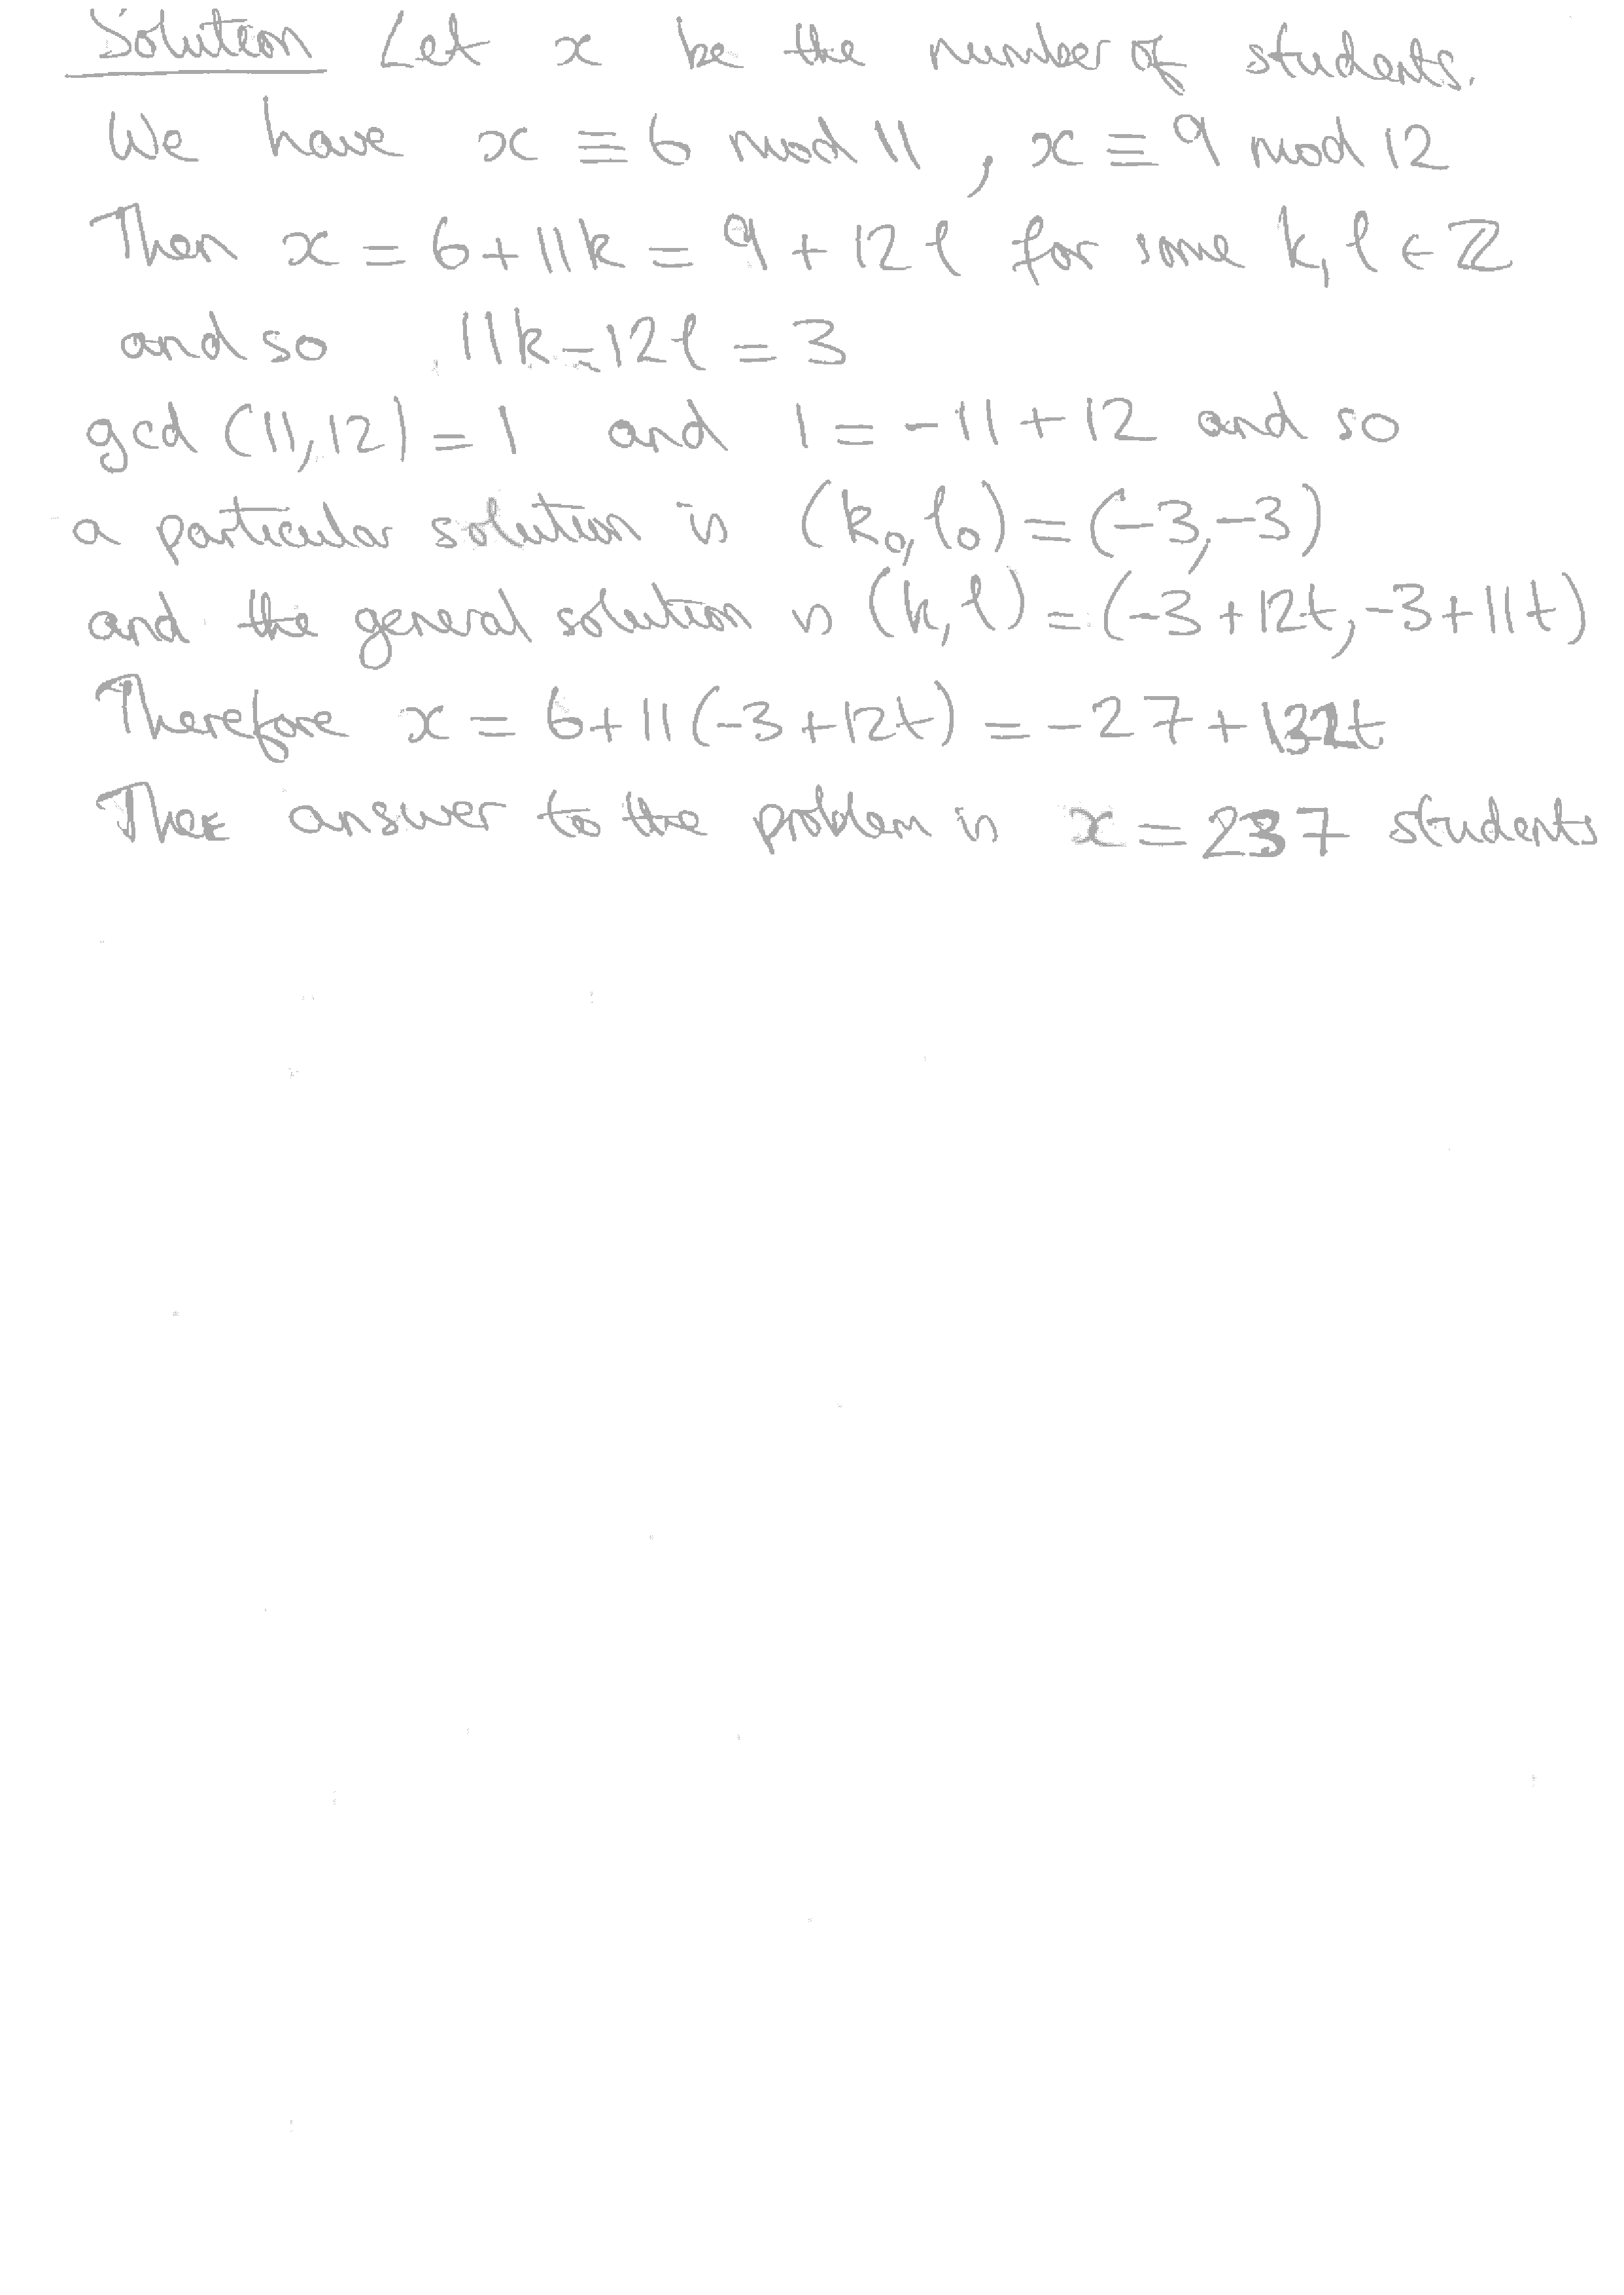 Solution Let x be the number of students.
We have x ≡ 6 mod 11, x ≡ 9 mod 12
Then x = 6 + 11k = 9 + 12ℓ for some k, ℓ ∈ ℤ
and so 11k - 12ℓ = 3
gcd (11, 12) = 1 and 1 = -11 + 12 and so
a particular solution is (k₀, ℓ₀) = (-3, -3)
and the general solution is (k, ℓ) = (-3 + 12t, -3 + 11t)
Therefore x = 6 + 11(-3 + 12t) = -27 + 132t
The answer to the problem is x = 237 students